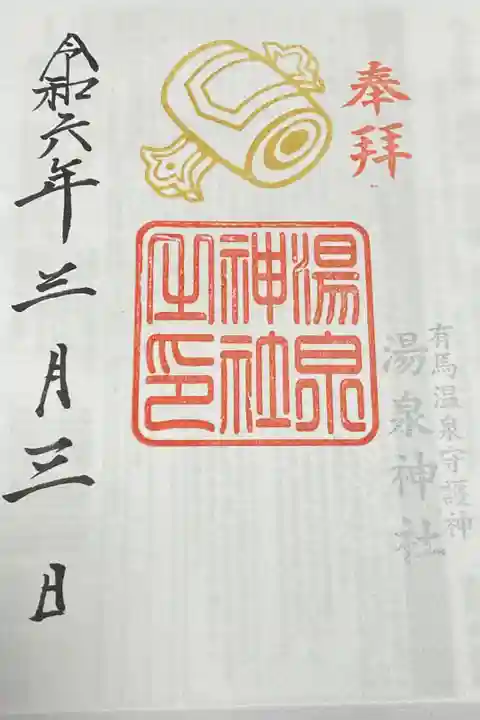 奉拝
有馬温泉守護神
湯泉神社
湯泉神社之印
令和六年三月三日